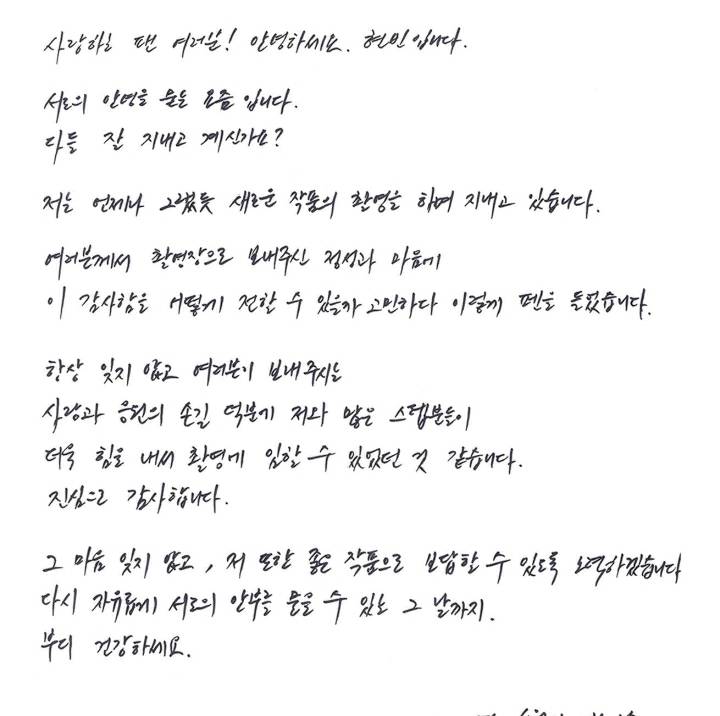 사랑하는 팬 여러분! 안녕하세요. 현빈입니다.
서로의 안녕을 묻는 요즘입니다.
다들 잘 지내고 계신가요?
저는 언제나 그랬듯 새로운 작품의 촬영을 하며 지내고 있습니다.
여러분께서 촬영장으로 보내주신 정성과 마음에
이 감사함을 어떻게 전할 수 있을까 고민하다 이렇게 펜을 들었습니다.
항상 잊지 않고 여러분이 보내주시는
사랑과 응원의 손길 덕분에 저와 많은 스텝분들이
더욱 힘을 내서 촬영에 임할 수 있었던 것 같습니다.
진심으로 감사합니다.
그 마음 잊지 않고, 저 또한 좋은 작품으로 보답할 수 있도록 노력하겠습니다
다시 자유롭게 서로의 안부를 물을 수 있는 그 날까지.
부디 건강하세요.